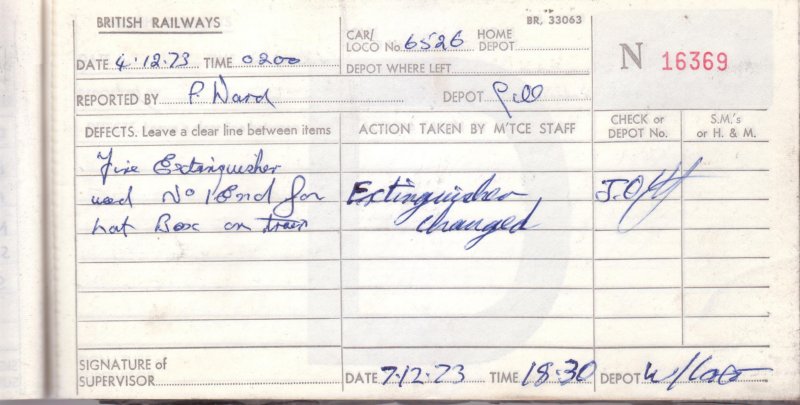 BRITISH RAILWAYS
BR. 33063
CAR/ LOCO No. 6526 HOME DEPOT
N 16369
DATE 4.12.73 TIME 0200
DEPOT WHERE LEFT
REPORTED BY P. Ward DEPOT
DEFECTS. Leave a clear line between items
ACTION TAKEN BY M'TCE STAFF
CHECK or DEPOT No.
S.M.'s or H. & M.
Fire Extinguisher
used No 1 End for
hot Box on train
Extinguisher
changed
SIGNATURE of
SUPERVISOR
DATE 7.12.73 TIME 18.30 DEPOT